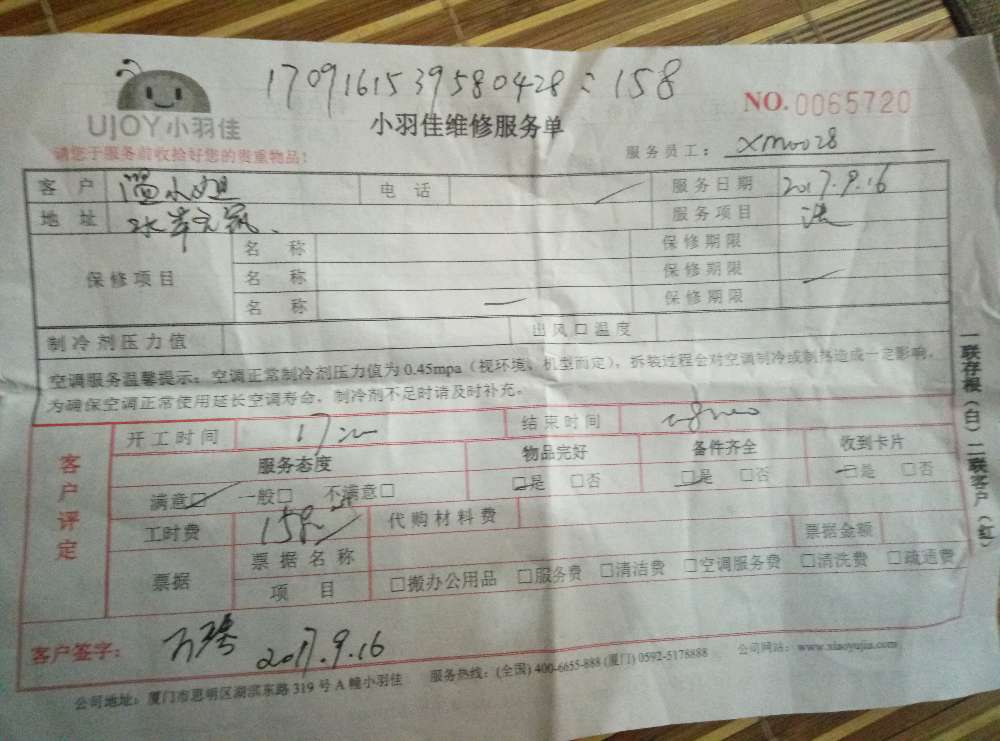 1709161539580428:158
NO.0065720
UJOY小羽佳
小羽佳维修服务单
请您于服务前收拾好您的贵重物品！
服务员工： XM0028
客户 温小姐 电话 服务日期 2017.9.16
地址 服务项目
保修项目 名称 保修期限
名称 保修期限
名称 保修期限
制冷剂压力值 出风口温度
空调服务温馨提示：空调正常制冷剂压力值为0.45mpa（视环境、机型而定），拆装过程会对空调制冷或制热造成一定影响，
为确保空调正常使用延长空调寿命，制冷剂不足时请及时补充。
客户评定
开工时间 结束时间
服务态度 物品完好 备件齐全 收到卡片
满意□ 一般□ 不满意□ □是 □否 □是 □否 □是 □否
工时费 158 代购材料费
票据 票据名称 票据金额
项目 □搬办公用品 □服务费 □清洁费 □空调服务费 □清洗费 □疏通费
客户签字： 2017.9.16
公司地址：厦门市思明区湖滨东路319号A幢小羽佳 服务热线：(全国) 400-6655-888 (厦门) 0592-5178888 公司网站：www.xiaoyujia.com
一联存根（白）二联客户（红）